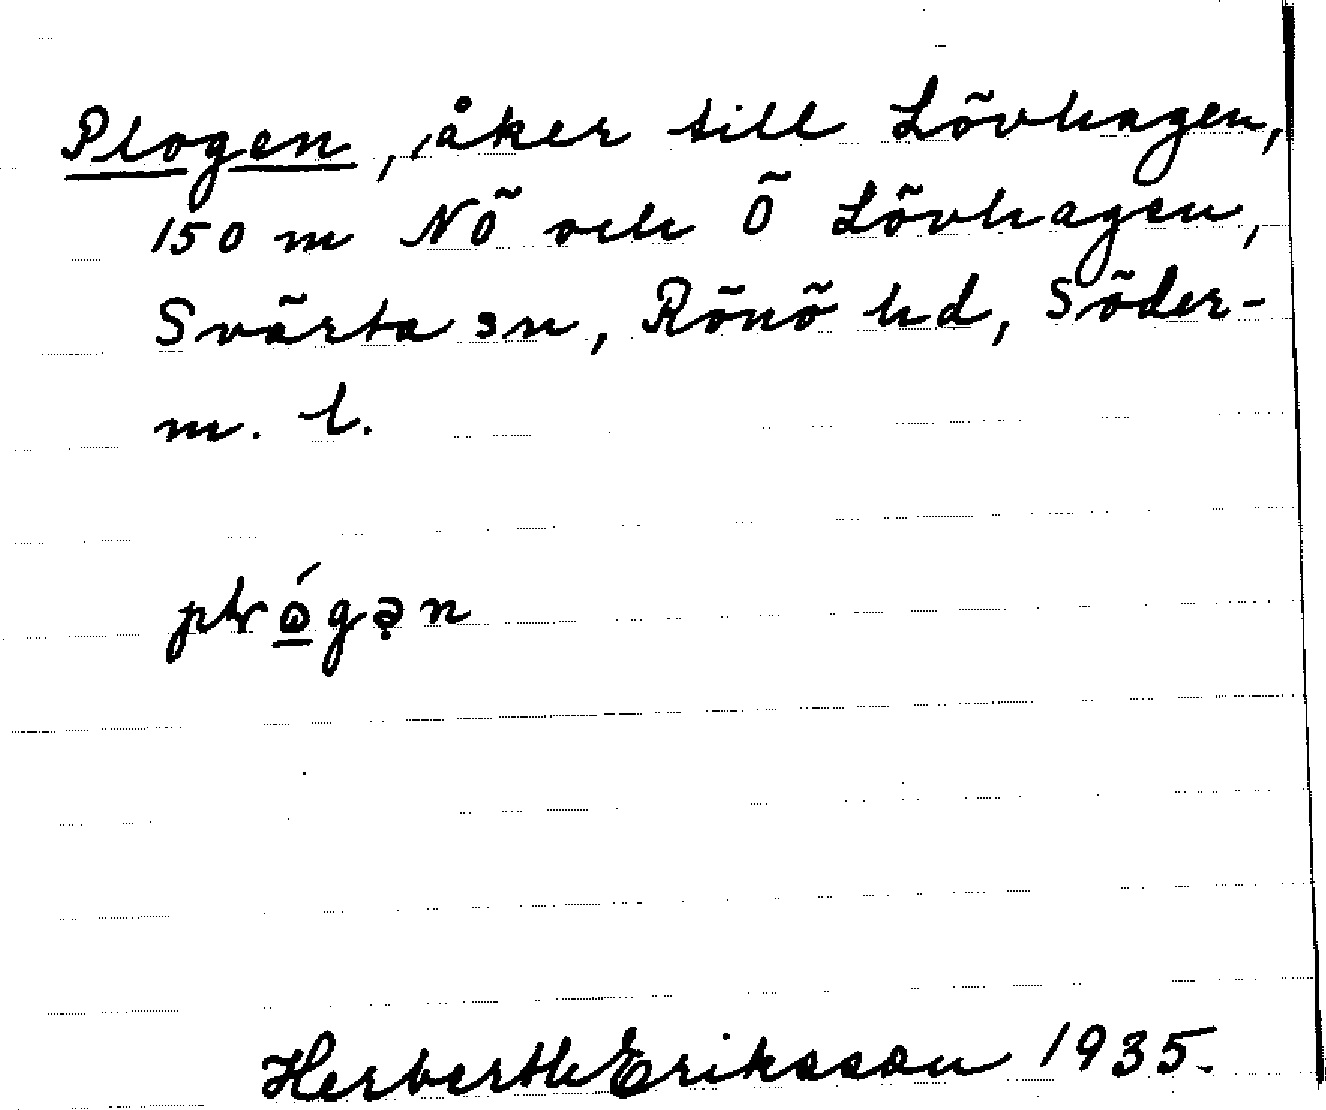 Plogen, åker till Lövhagen,
150 m NÖ och Ö Lövhagen,
Svärta sn, Rönö hd, Söder-
m. l.
Herberth Eriksson 1935.